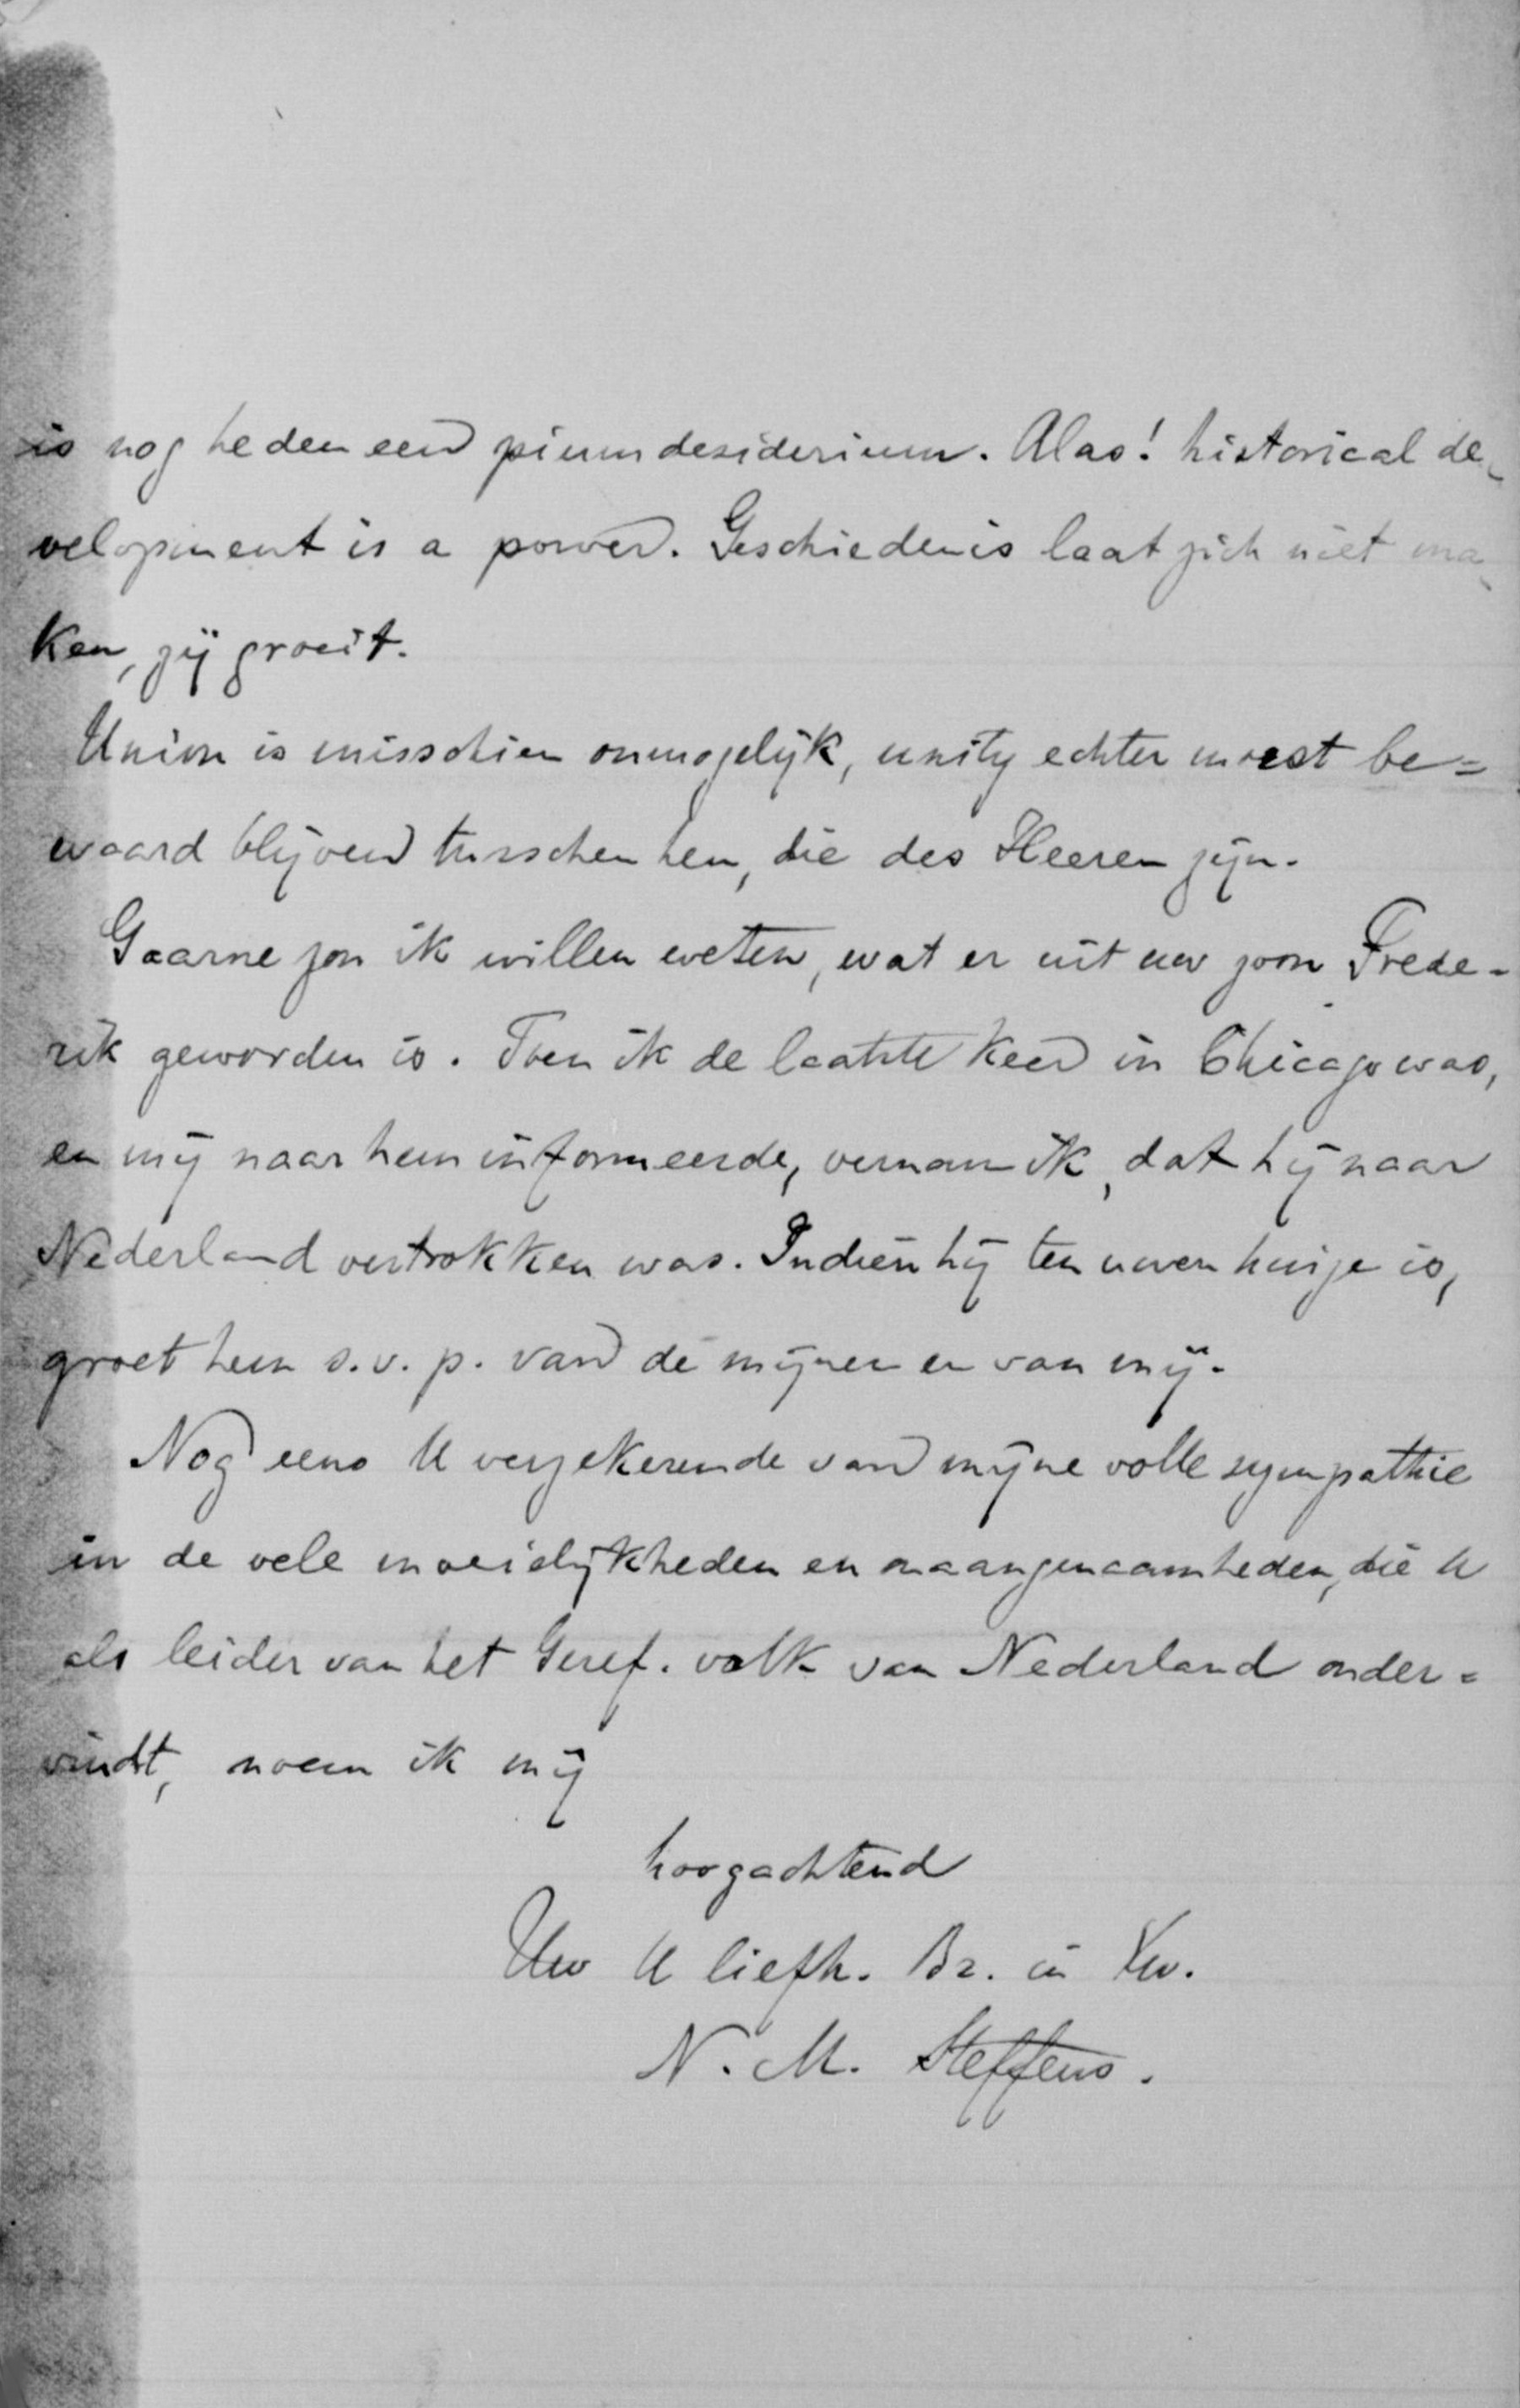 is nog heden een pium desiderium. Alas! historical de-
velopment is a power. Geschiedenis laat zich niet ma-
ken, zij groeit.
Union is misschien onmogelijk, unity echter moest be=
waard blijven tusschen hen, die des Heeren zijn.
Gaarne zou ik willen weten, wat er uit uw zoon Frede-
rik geworden is. Toen ik de laatste keer in Chicago was,
en mij naar hem informeerde, vernam ik, dat hij naar
Nederland vertrokken was. Indien hij ten uwen huize is,
groet hem s.v.p. van de mijnen en van mij.
Nog eens U verzekerende van mijne volle sympathie
in de vele moeielijkheden en onaangenaamheden, die U
als leider van het Geref. volk van Nederland onder=
vindt, noem ik mij
hoogachtend
Uw U liefh. Br. in Xto.
N. M. Steffens.